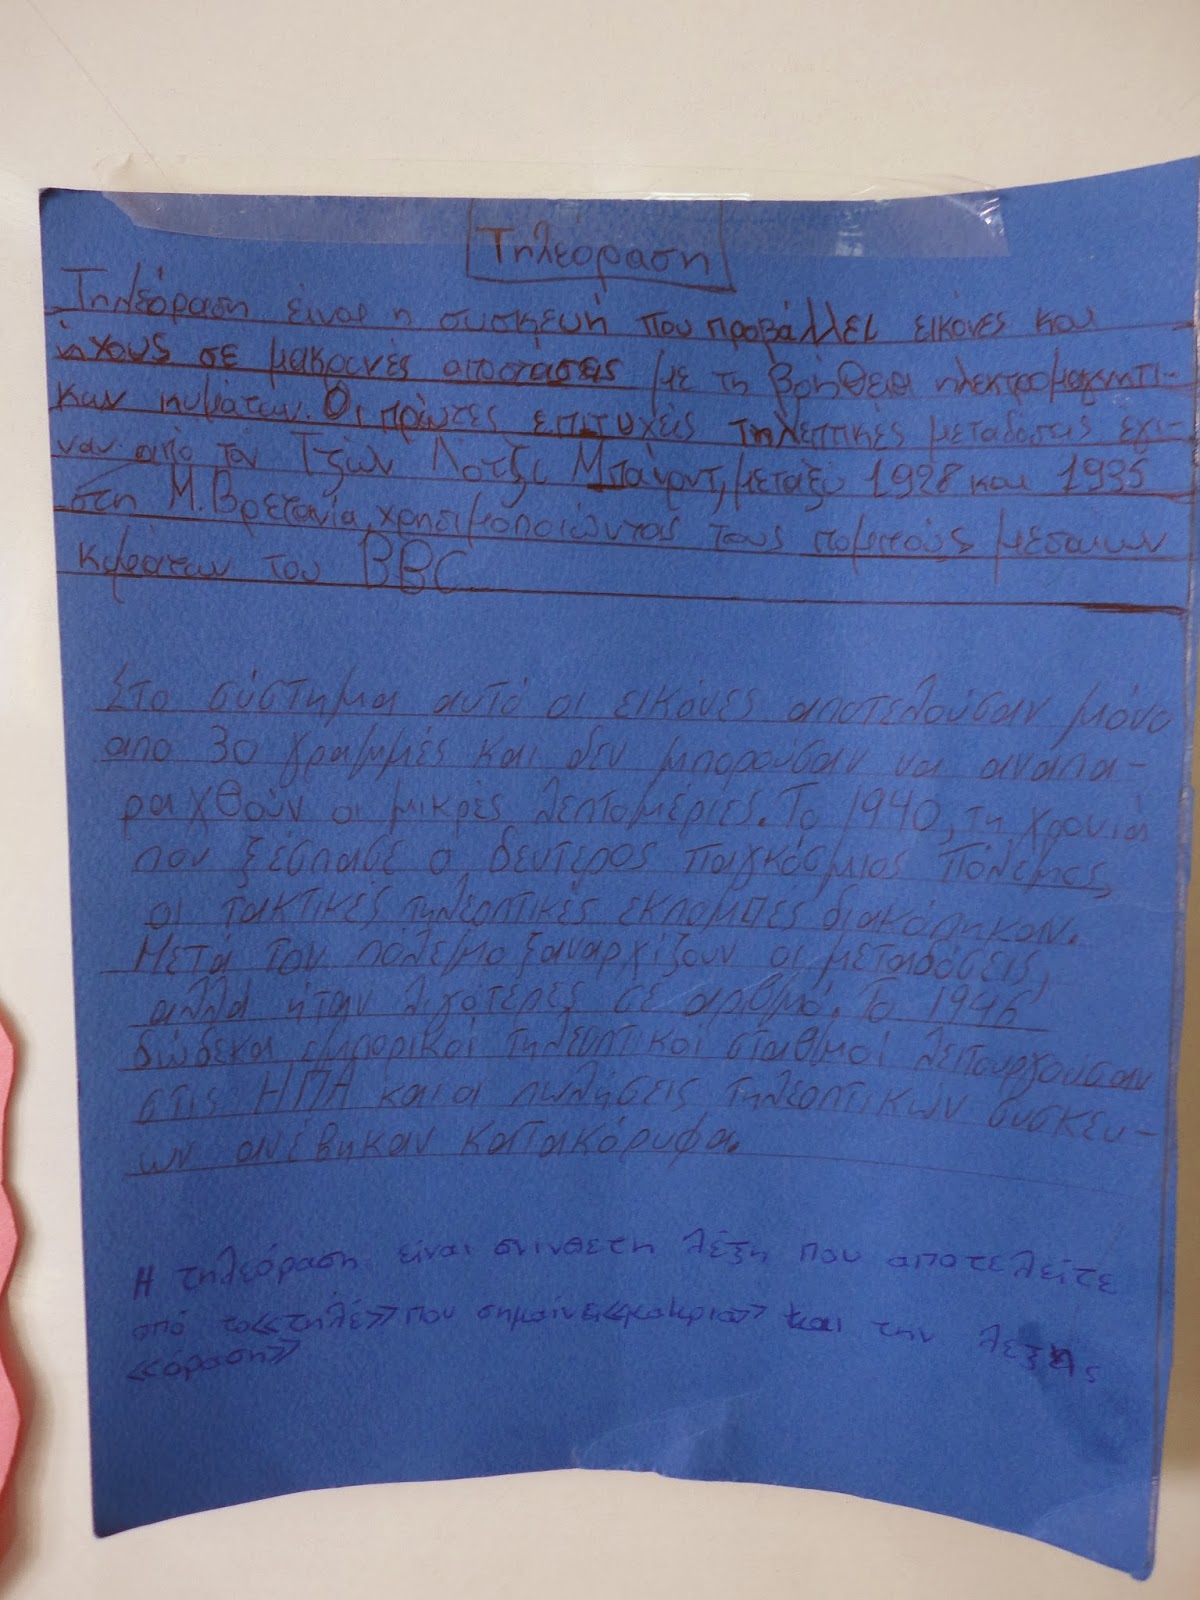 Τηλεόραση
Τηλεόραση είναι η συσκευή που προβάλλει εικόνες και
ήχους σε μακρινές αποστάσεις με τη βοήθεια ηλεκτρομαγνητι-
κων κυμάτων. Οι πρώτες επιτυχείς τηλεπτικές μεταδόσεις έγι-
ναν από τον Τζών Λότζι Μπαίρντ, μεταξύ 1928 και 1935
στη Μ. Βρετανία, χρησιμοποιώντας τους πομπούς μεσαιων
κυμάτων του BBC
Στο σύστημα αυτό οι εικόνες αποτελούσαν μόνο
απο 30 γραμμές και δεν μπορούσαν να αναπα-
ραχθούν οι μικρές λεπτομέριες. Το 1940, τη χρονιά
που ξέσπασε ο δευτερος παγκόσμιος πόλεμος,
οι τακτικές τηλεοπτικές εκπομπές διακόπηκαν.
Μετά τον πόλεμο ξαναρχίζουν οι μεταδόσεις,
αλλά ήταν λιγότερες σε αριθμό. Το 1946
δώδεκα εμπορικοί τηλεοπτικοί σταθμοί λειτουργούσαν
στις ΗΠΑ και οι πωλήσεις τηλεοπτικών συσκευ-
ων ανέβηκαν κατακόρυφα.
Η τηλεόραση είναι σνινθετη λέξη που αποτελείτε
από το «τηλέ» που σημαίνει «μακρια» και την λέξης
«όραση»